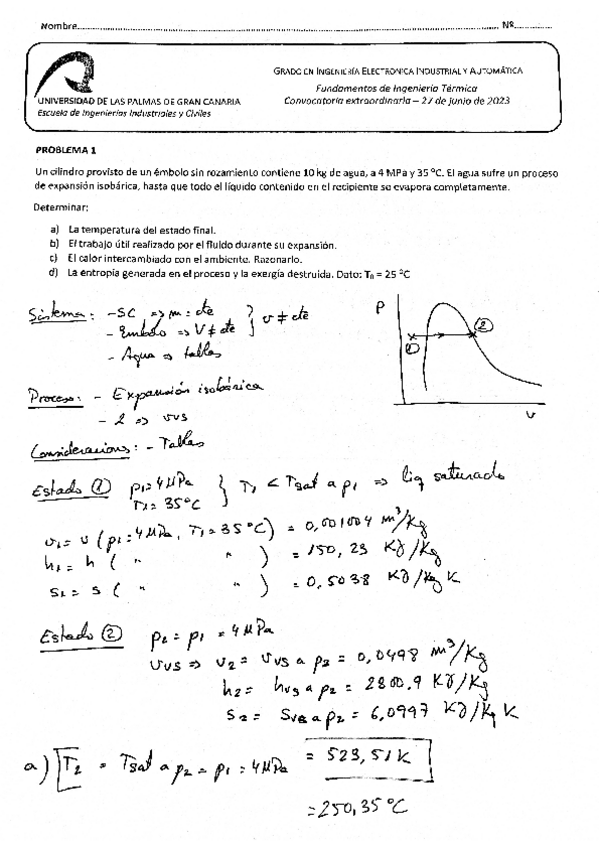 Nombre.......................................................................................................................................... Nº..............
GRADO EN INGENIERÍA ELECTRÓNICA INDUSTRIAL Y AUTOMÁTICA
Fundamentos de Ingeniería Térmica
UNIVERSIDAD DE LAS PALMAS DE GRAN CANARIA
Convocatoria extraordinaria – 27 de junio de 2023
Escuela de Ingenierías Industriales y Civiles
PROBLEMA 1
Un cilindro provisto de un émbolo sin rozamiento contiene 10 kg de agua, a 4 MPa y 35 ºC. El agua sufre un proceso
de expansión isobárica, hasta que todo el líquido contenido en el recipiente se evapora completamente.
Determinar:
a) La temperatura del estado final.
b) El trabajo útil realizado por el fluido durante su expansión.
c) El calor intercambiado con el ambiente. Razonarlo.
d) La entropía generada en el proceso y la exergía destruida. Dato: T₀ = 25 ºC
Sistema: - SC => m = cte
- Embolo => V ≠ cte } v ≠ cte
- Agua => tablas
P
①
②
v
Proceso: - Expansión isobárica
- 2 => vvs
Consideracions: - Tablas
Estado ① p₁ = 4 MPa
T₁ = 35ºC } T₁ < Tsat a p₁ => liq saturado
v₁ = v (p₁ = 4 MPa, T₁ = 35ºC) = 0,001004 m³/Kg
h₁ = h ( " " ) = 150,23 KJ/Kg
s₁ = s ( " " ) = 0,5038 KJ/Kg K
Estado ② p₂ = p₁ = 4 MPa
vvs => v₂ = vvs a p₂ = 0,0498 m³/Kg
h₂ = hvs a p₂ = 2800,9 KJ/Kg
s₂ = svs a p₂ = 6,0997 KJ/Kg K
a) T₂ = Tsat a p₂ = p₁ = 4 MPa = 523,51 K
= 250,35 ºC